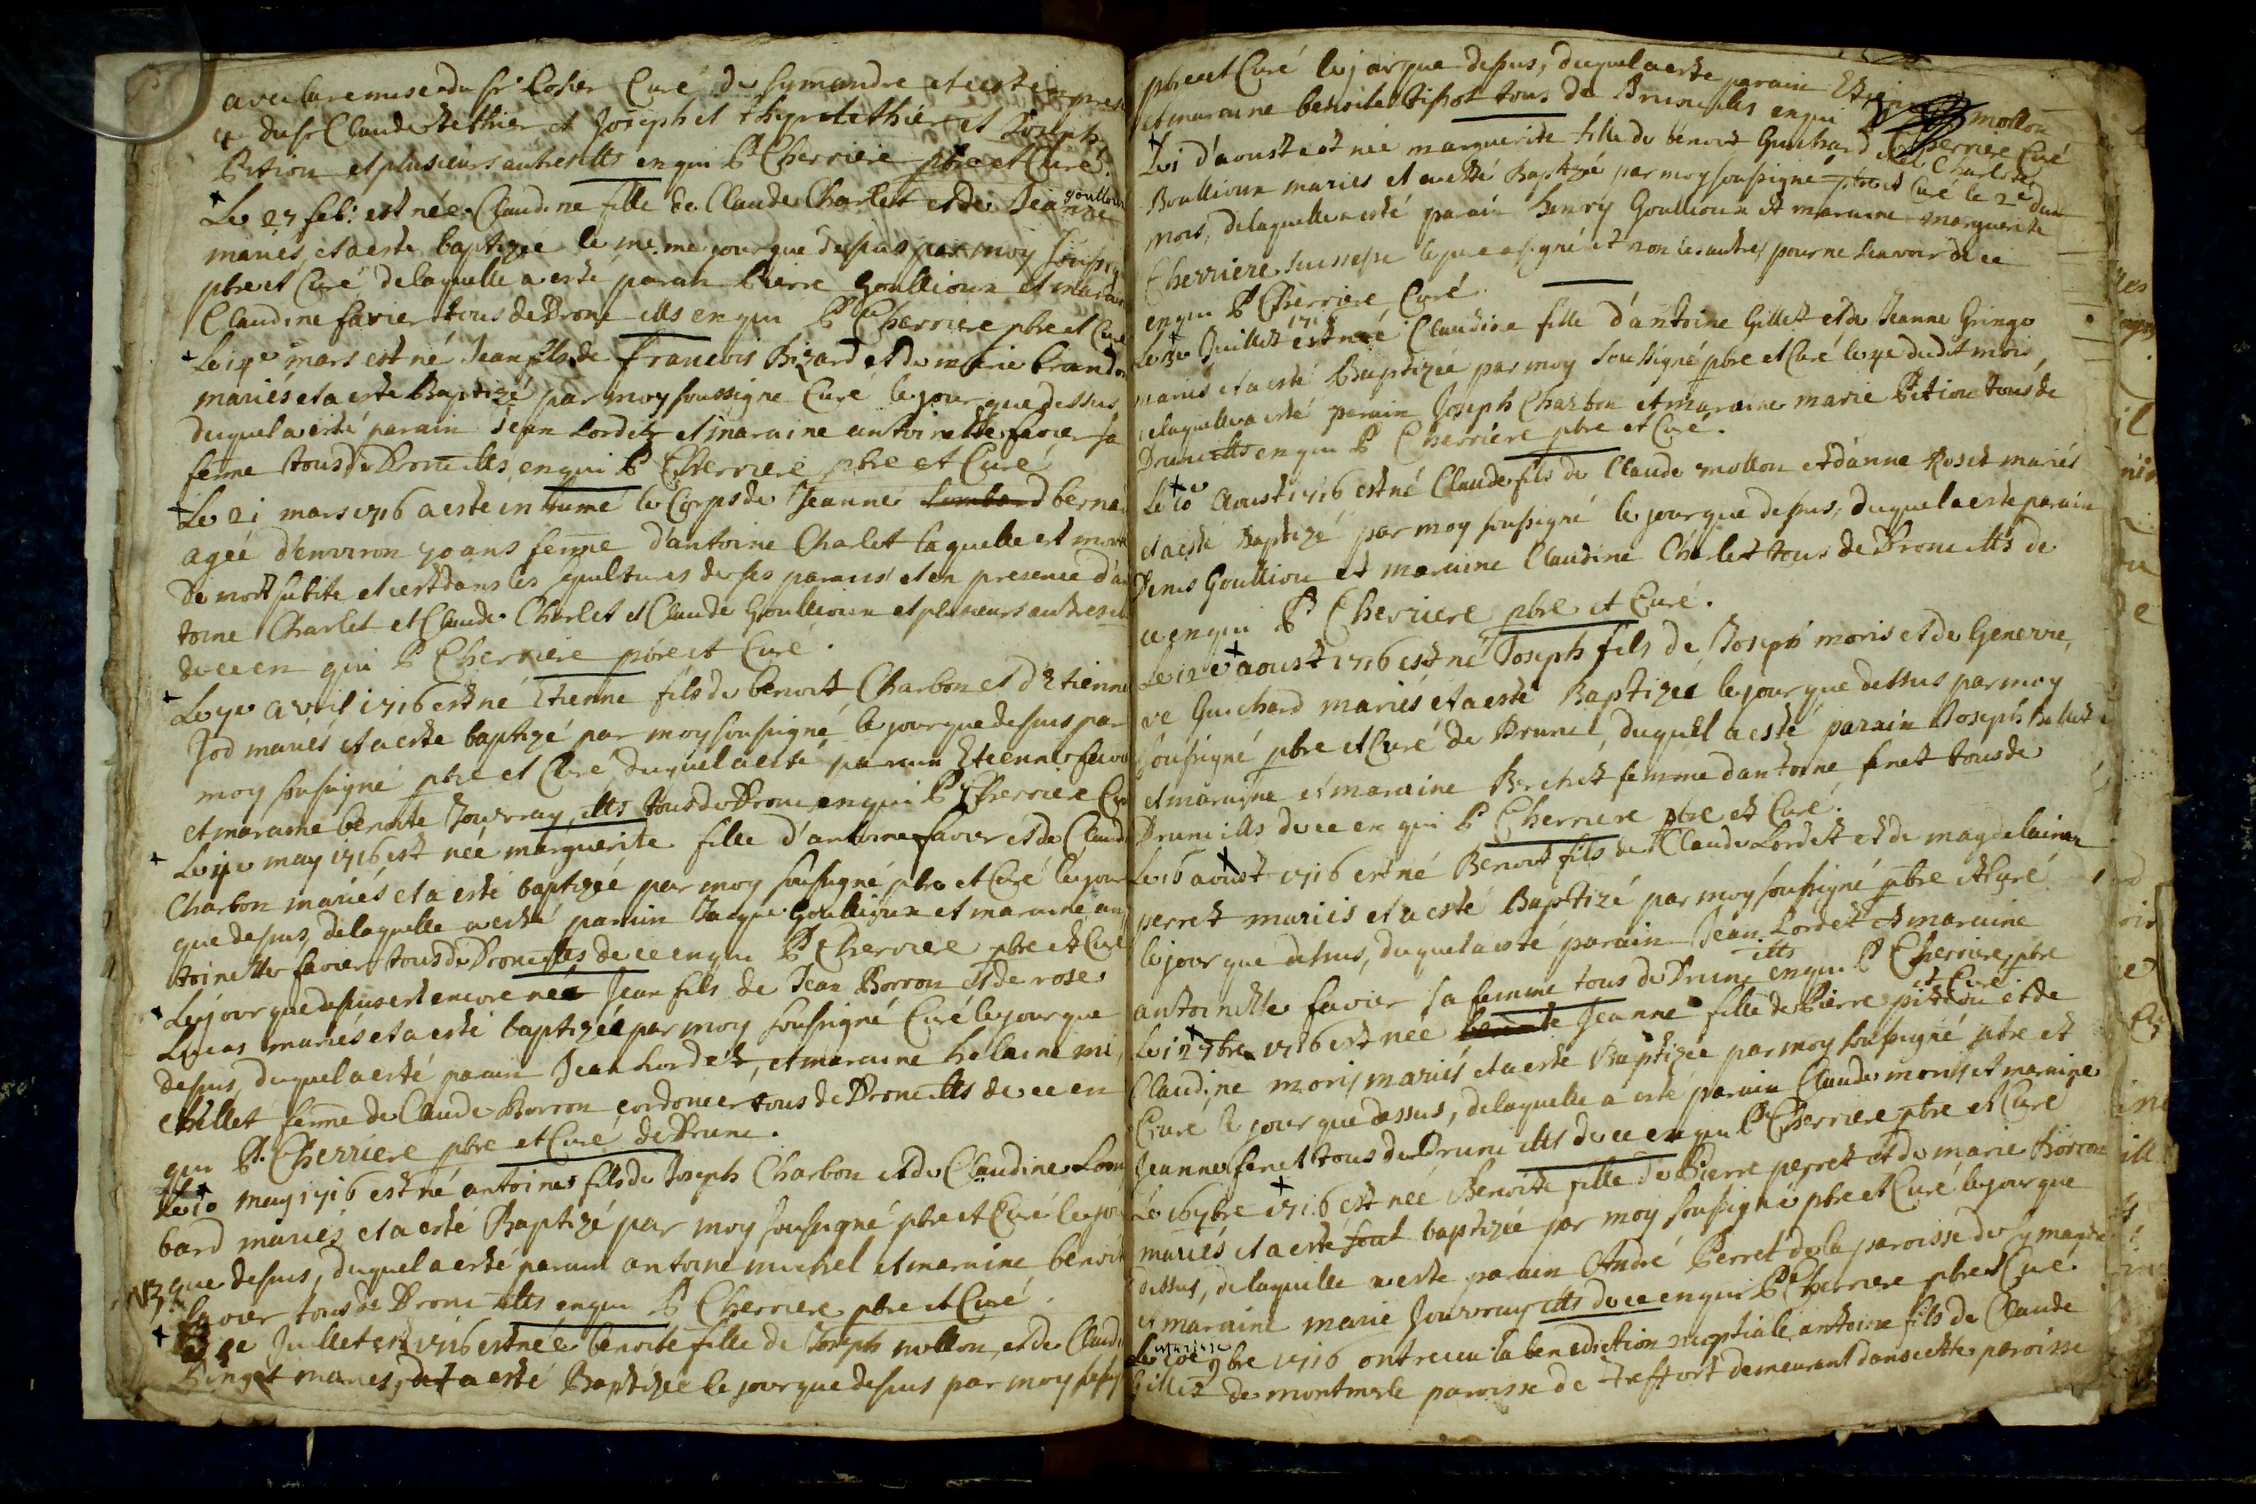 avec la remise du sr Cosier Curé de Symandre et c'est en prese
ce du sr Claude Tethier et Joseph et Tethier et Joseph
Pition et plusieurs autres ills enqui Pt Cherriere pbre et Curé
Le 27 feb: est née Claudine fille de Claude Charlet et de Jeanne goullioux
mariés, et a esté baptizée le meme jour que desus par moy soussig
pbre et Curé delaquelle a esté parain Pierre Goullioux et marain
Claudine favier tous de Drom ills enqui Pt Cherriere pbre et Curé
Le 14e mars est né Jean fils de francois Bizard et de marie brando
mariés et a esté Baptizé par moy soussigné Curé le jour que dessus
duquel a esté parain Jean Lordet et maraine antoinette favier sa
feme tous de Drom ills, enqui Pt Cherriere pbre et Curé
Le 21 mars 1716 a esté inhumé le Corps de Jeanne Lombard berna
agée d'environ 70 ans feme d'antoine Charlet laquelle est morte
de mort subite et c'est dans les sepultures de ses parans et en presence d'an
toine Charlet et Claude Charlet et Claude Goullioux et plusieurs autres
de ce en qui Pt Cherriere pbre et Curé.
Le 7e avril 1716 est né Etienne fils de benoit Charbon et d'Etienne
Jod mariés et a esté baptizé par moy sousigné le jour que desus par
moy sousigné pbre et Curé duquel a esté parain Etienne favi
et maraine benoite Jouvray, ills tous de Drom enqui Pt Cherriere Cu
Le 4e may 1716 est née marguerite fille d'antoine favier et de Claud
Charbon mariés et a esté baptizée par moy sousigné pbre et Curé le jour
que desus, delaquelle a esté parain Jacque Goullioux et maraine an
toinette favier tous de Drom ills de ce enqui Pt Cherriere pbre et Curé
Le jour que desus est encore née Jean fils de Jean Borron et de rose
Lucas mariés et a esté baptizée par moy sousigné Curé le jour que
desus, duquel a esté parain Jean Lordet, et maraine helaine mi
chillet feme de Claude Borron cordonier tous de Drom ills de ce en
qui Pt. Cherriere pbre et Curé de Drum.
Le 10 may 1716 est né antoine fils de Joseph Charbon et de Claudine Lom
bard mariés, et a esté Baptizé par moy sousigné pbre et Curé le jou
que desus, duquel a esté parain antoine michel et maraine benoit
favier tous de Drom ills enqui Pt Cherriere pbre et Curé.
Juillet 1716 est née benoite fille de Joseph mollon, et de Claudi
Pinget mariés, et a esté Baptizée le jour que desus par moy sousig
pbre et Curé le jour que desus, duquel a esté parain Etienne mollon
et maraine benoite Tissot tous de Drum ills enqui Cherriere Curé
Le 1 d'aoust est née marguerite fille de benoit Guichard et de Charlotte
Boullioux mariés et a esté Baptizé par moy sousigné pbre et Curé le 2e dud
mois, delaquelle a esté parain henry Goullioux et maraine marguerite
Cherriere, lequel a signé et non les autres pour ne scavoir de ce
enqui Pt Cherriere Curé
Le 3e Juillet 1716 est née Claudine fille d'antoine Gillet et de Jeanne Gringo
mariés et a esté Baptizée par moy soussigné pbre et Curé le 4e dudit mois,
delaquelle a esté parain Joseph Charbon et maraine marie Pition tous de
Drum ills enqui Pt Cherriere pbre et Curé.
Le 10e Aoust 1716 est né Claude fils de Claude mollon et d'anne Roset mariés
et a esté Baptizé par moy sousigné le jour que desus, duquel a esté parain
Denis Goullion et maraine Claudine Charlet tous de Drom ills de
ce enqui Pt Cherriere pbre et Curé.
Le 12e aoust 1716 est né Joseph fils de Joseph moris et de Generie
ve Guichard mariés et a esté Baptizée le jour que dessus par moy
sousigné pbre et Curé de Drum, duquel a esté parain Joseph Ballet
et maraine et maraine Berchet femme dantoine fenet tous de
Drum ills de ce en qui Pt Cherriere pbre et Curé.
Le 16 aoust 1716 est né Benoit fils de Claude Lordet et de magdelaine
perret mariés et a esté Baptizé par moy soussigné pbre et Curé
le jour que desus, duquel a esté parain Jean Lordet et maraine
antoinette favier sa femme tous de Drum ills enqui Pt Cherriere pbre et Curé
Le 12 7bre 1716 est née benoite Jeanne fille de Pierre pition et de
Claudine moris mariés et a esté Baptizée par moy sousigné pbre et
Curé le jour que dessus, delaquelle a esté parain Claude moris et maraine
Jeanne fenet tous de Drum ills de ce enqui Pt Cherriere pbre et Curé
Le 16 7bre 1716 est née Benoite fille de Pierre perret et de marie Borron
mariés et a esté baptizée par moy sousigné pbre et Curé le jour que
dessus, delaquelle a esté parain André Perret de la paroisse de Symandre
et maraine marie Jouvray ills de ce enqui Pt Cherriere pbre et Curé.
mariage
Le 20e 9bre 1716 ont receu la benediction nuptiale antoine fils de Claude
Gillet de montmerle paroisse de Treffort demeurant dans cette paroisse